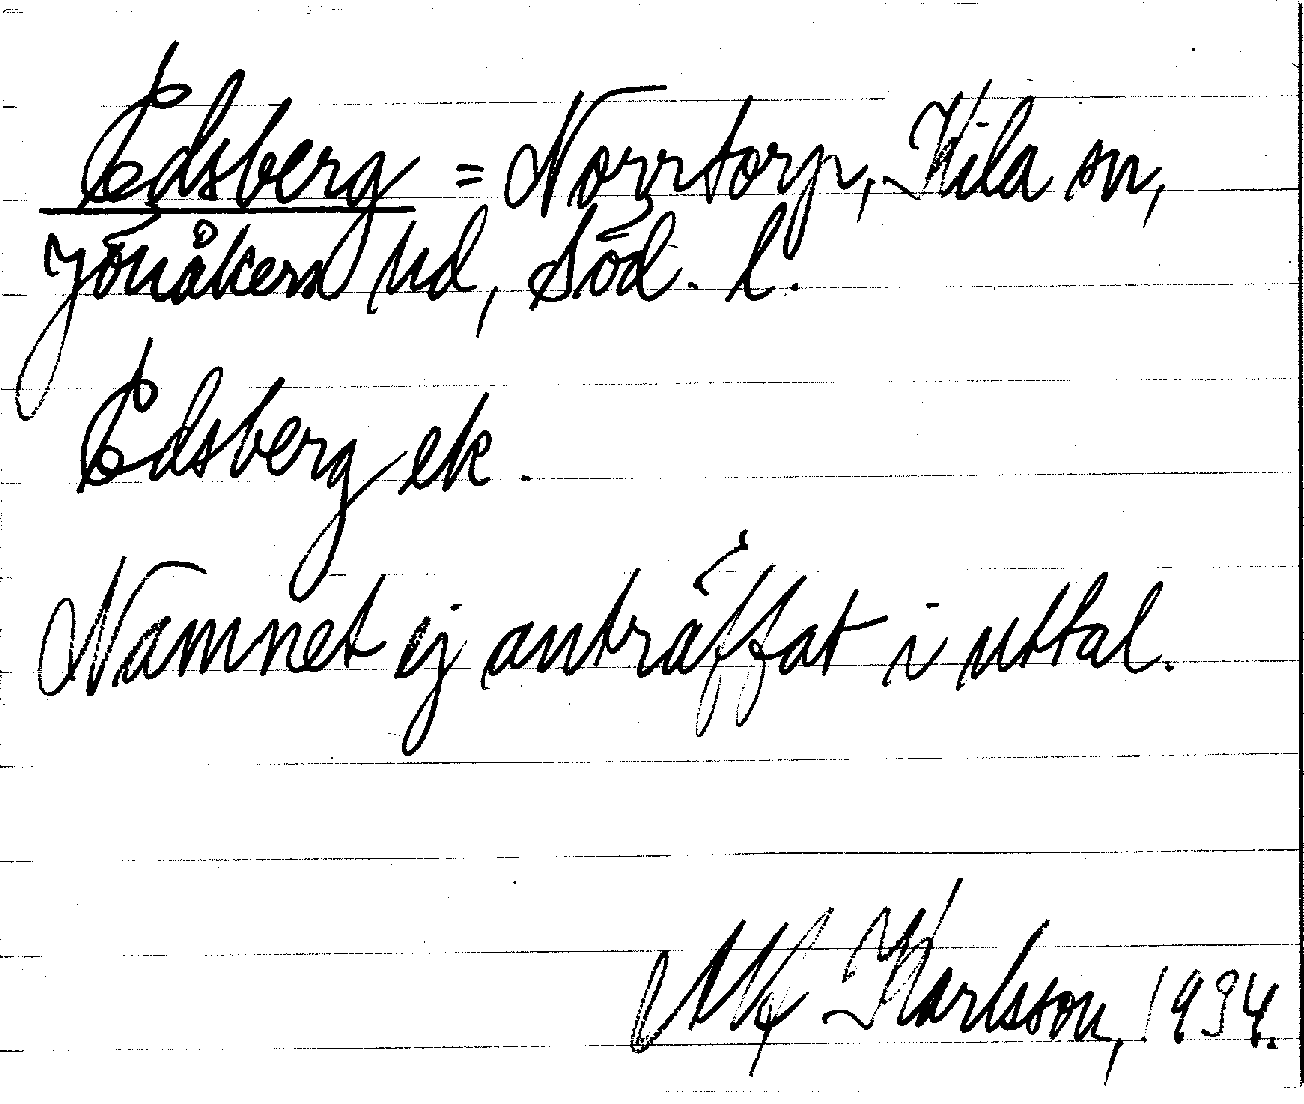 Edsberg = Norrtorp, Kila sn,
Jönåkers hd, Söd. l.
Edsberg ek.
Namnet ej anträffat i uttal.
Karlsson, 1934.